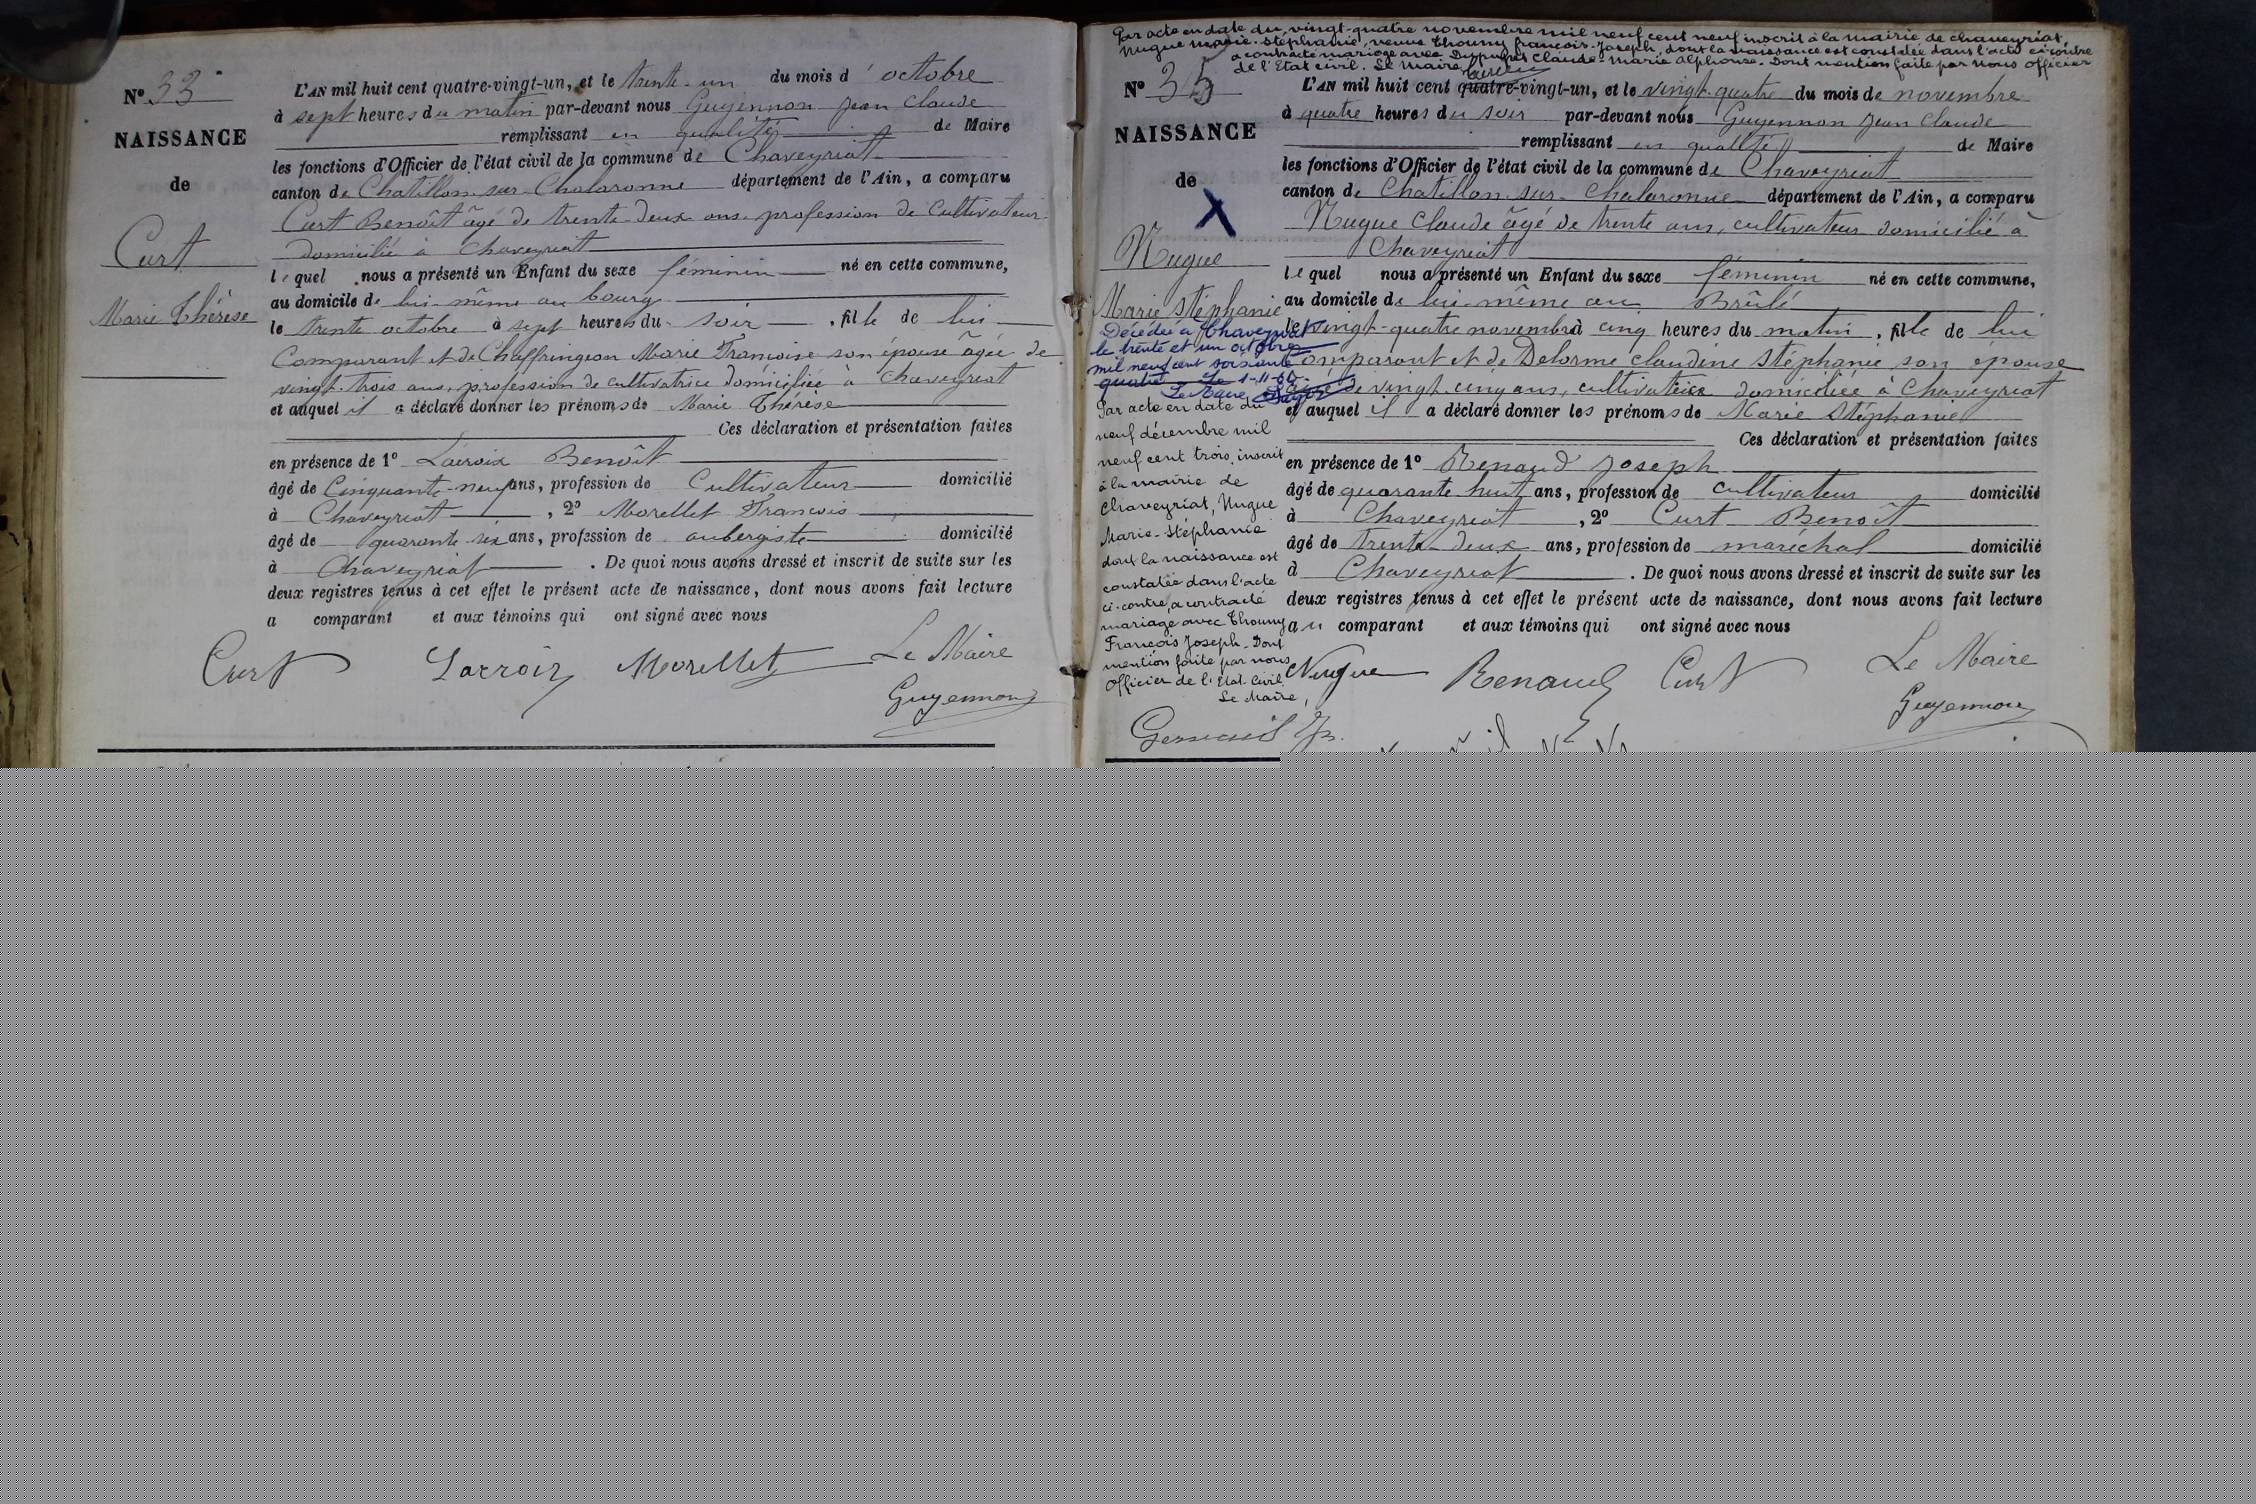 N° 33
NAISSANCE
de
Curt
Marie Thérèse
L'AN mil huit cent quatre-vingt-un, et le trente-un du mois d'octobre
à sept heures du matin par-devant nous Guyennon Jean Claude
remplissant en qualité de Maire
les fonctions d'Officier de l'état civil de la commune de Chaveyriat
canton de Chatillon-sur-Chalaronne département de l'Ain, a comparu
Curt Benoît âgé de trente-deux ans profession de cultivateur
domicilié à Chaveyriat
lequel nous a présenté un Enfant du sexe féminin né en cette commune,
au domicile de lui-même au bourg
le trente octobre à sept heures du soir, fille de lui
Comparant et de Chaffringeon Marie Françoise son épouse âgée de
vingt-trois ans, profession de cultivatrice domiciliée à Chaveyriat
et auquel il a déclaré donner les prénoms de Marie Thérèse
Ces déclaration et présentation faites
en présence de 1° Lacroix Benoît
âgé de Cinquante-neuf ans, profession de Cultivateur domicilié
à Chaveyriat, 2° Morellet François
âgé de quarante six ans, profession de aubergiste domicilié
à Chaveyriat. De quoi nous avons dressé et inscrit de suite sur les
deux registres tenus à cet effet le présent acte de naissance, dont nous avons fait lecture
a comparant et aux témoins qui ont signé avec nous
Curt Lacroix Morellet Le Maire
Guyennon
Par acte en date du vingt-quatre novembre mil neuf cent neuf inscrit à la mairie de chaveyriat,
Nugue Marie-Stéphanie, veuve Thoumy françois-Joseph, dont la naissance est constatée dans l'acte ci-contre
a contracté mariage avec Dupupet Claude-Marie Alphonse. Dont mention faite par nous officier
de l'Etat civil. Le Maire
N° 35
NAISSANCE
de
X
Nugue
Marie Stéphanie
Décédée à Chaveyriat
le trente et un octobre
mil neuf cent soixante
quatre Le 1-11-64
Le Maire
Par acte en date du
neuf décembre mil
neuf cent trois, inscrit
à la mairie de
Chaveyriat, Nugue
Marie-Stéphanie
dont la naissance est
constatée dans l'acte
ci-contre, a contracté
mariage avec Thoumy
François Joseph. Dont
mention faite par nous
Officier de l'Etat-Civil.
Le Maire,
L'AN mil huit cent quatre-vingt-un, et le vingt-quatre du mois de novembre
à quatre heures du soir par-devant nous Guyennon Jean Claude
remplissant en qualité de Maire
les fonctions d'Officier de l'état civil de la commune de Chaveyriat
canton de Chatillon-sur-Chalaronne département de l'Ain, a comparu
Nugue Claude âgé de trente ans, cultivateur domicilié à
Chaveyriat
lequel nous a présenté un Enfant du sexe féminin né en cette commune,
au domicile de lui-même au Brûlé
le vingt-quatre novembre à cinq heures du matin, fille de lui
Comparant et de Delorme Claudine Stéphanie son épouse
âgée de vingt-cinq ans, cultivatrice domiciliée à Chaveyriat
et auquel il a déclaré donner les prénoms de Marie Stéphanie
Ces déclaration et présentation faites
en présence de 1° Renaud Joseph
âgé de quarante huit ans, profession de cultivateur domicilié
à Chaveyriat, 2° Curt Benoît
âgé de trente-deux ans, profession de maréchal domicilié
à Chaveyriat. De quoi nous avons dressé et inscrit de suite sur les
deux registres tenus à cet effet le présent acte de naissance, dont nous avons fait lecture
au comparant et aux témoins qui ont signé avec nous
Nugue Renaud Curt Le Maire
Guyennon